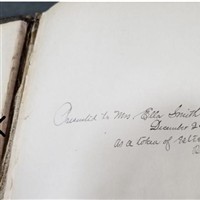 Presented to Mrs Ella Smith
December 2
as a token of